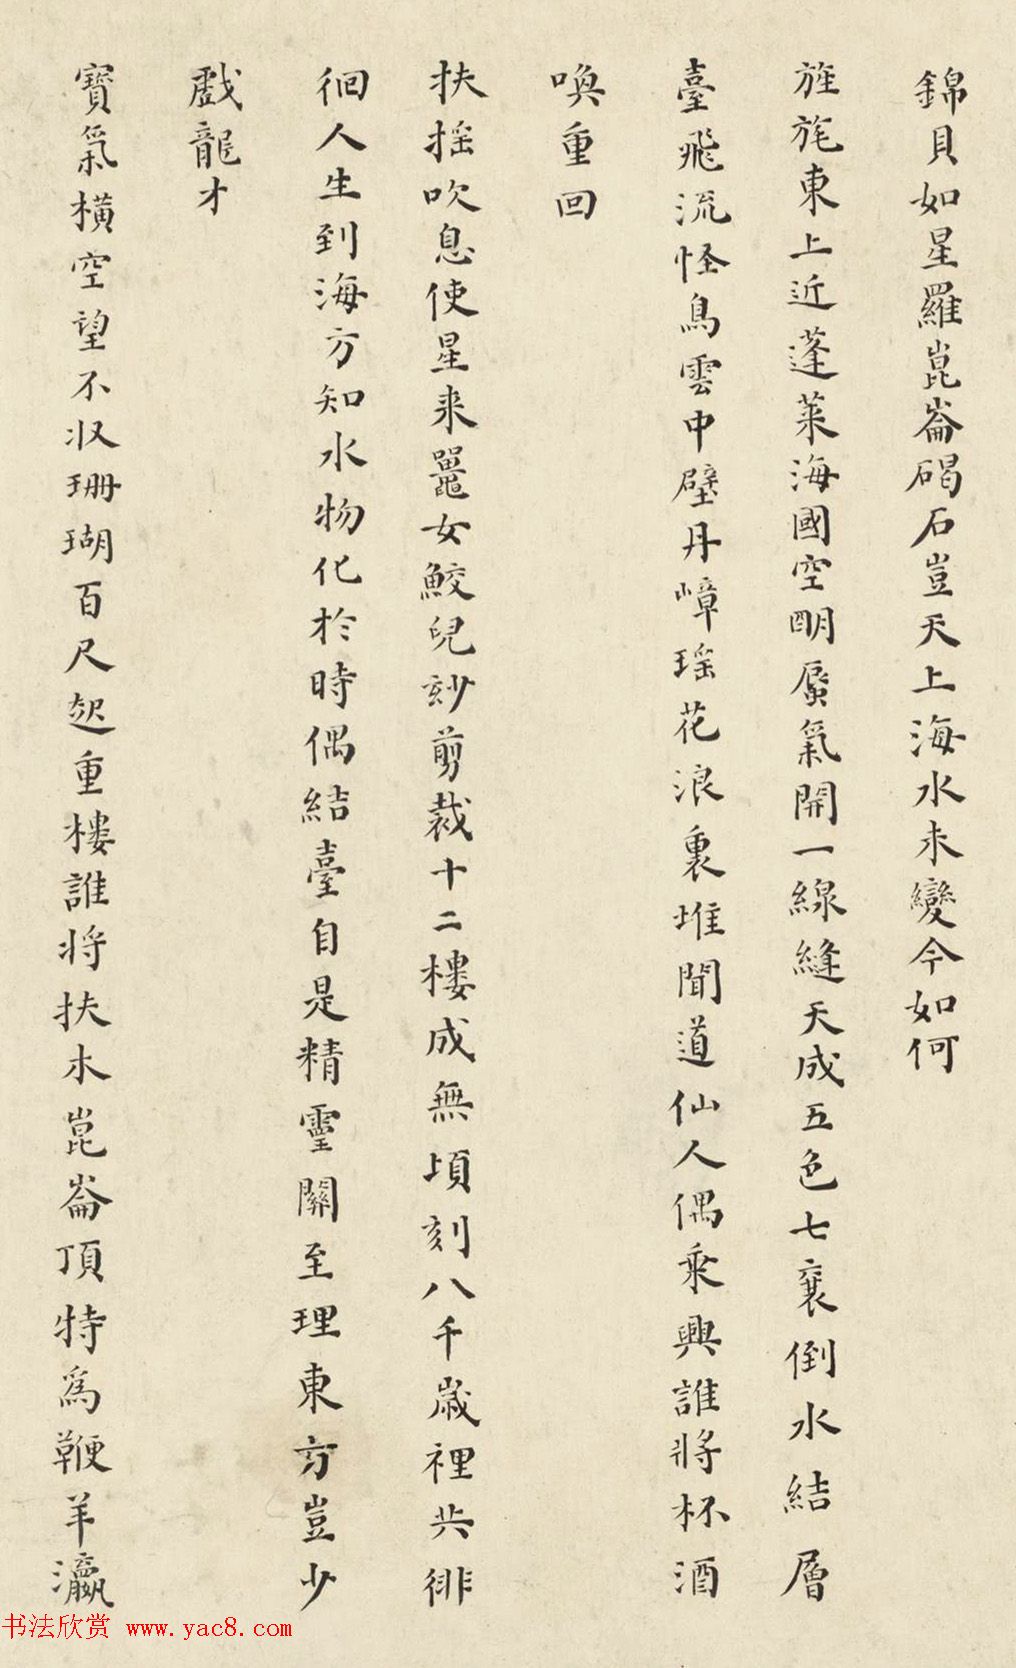 錦貝如星羅崑崙碣石豈天上海水未變今如何
旌旄東上近蓬萊海國空明蜃氣開一線縫天成五色七襄倒水結層
臺飛流怪鳥雲中壁丹嶂瑶花浪裏堆聞道仙人偶乘興誰將杯酒
喚重回
扶摇吹息使星来鼉女鮫兒玅剪裁十二樓成無頃刻八千歲裡共徘
徊人生到海方知水物化於時偶結臺自是精靈關至理東方豈少
戲龍才
寶氣横空望不収珊瑚百尺起重樓誰将扶木崑崙頂特為鞭羊瀛
书法欣赏 www.yac8.com